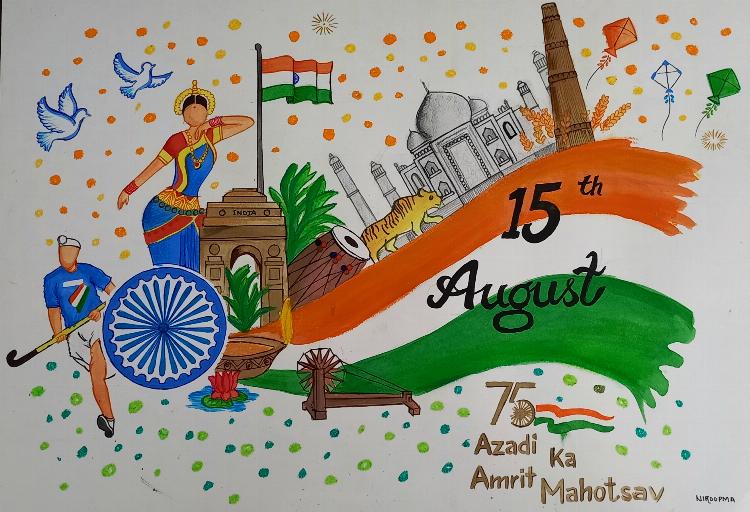 INDIA
15th
August
75
Azadi
Ka
Amrit
Mahotsav
NIROOPMA